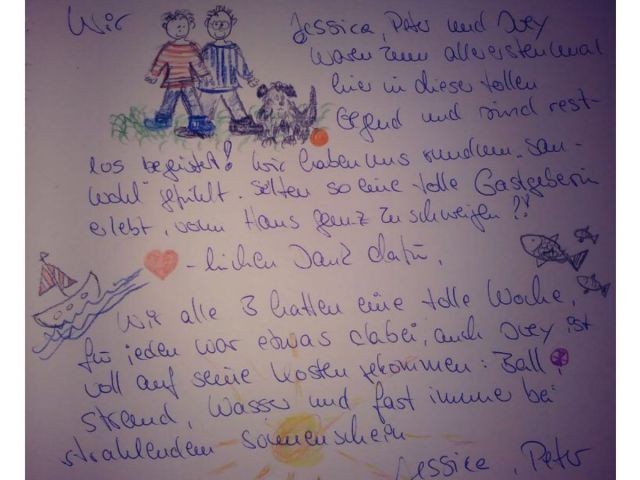 Wir Jessica, Peter und Joey
waren zum allerersten mal
hier in dieser tollen
Gegend und sind rest-
los begeistert! Wir haben uns rundum "sau-
wohl" gefühlt. Selten so eine tolle Gastgeberin
erlebt, vom Haus ganz zu schweigen?!
- lichen Dank dafür.
Wir alle 3 hatten eine tolle Woche,
für jeden war etwas dabei, auch Joey ist
voll auf seine Kosten gekommen: Ball,
Strand, Wasser und fast immer bei
strahlendem Sonnenschein
Jessica, Peter